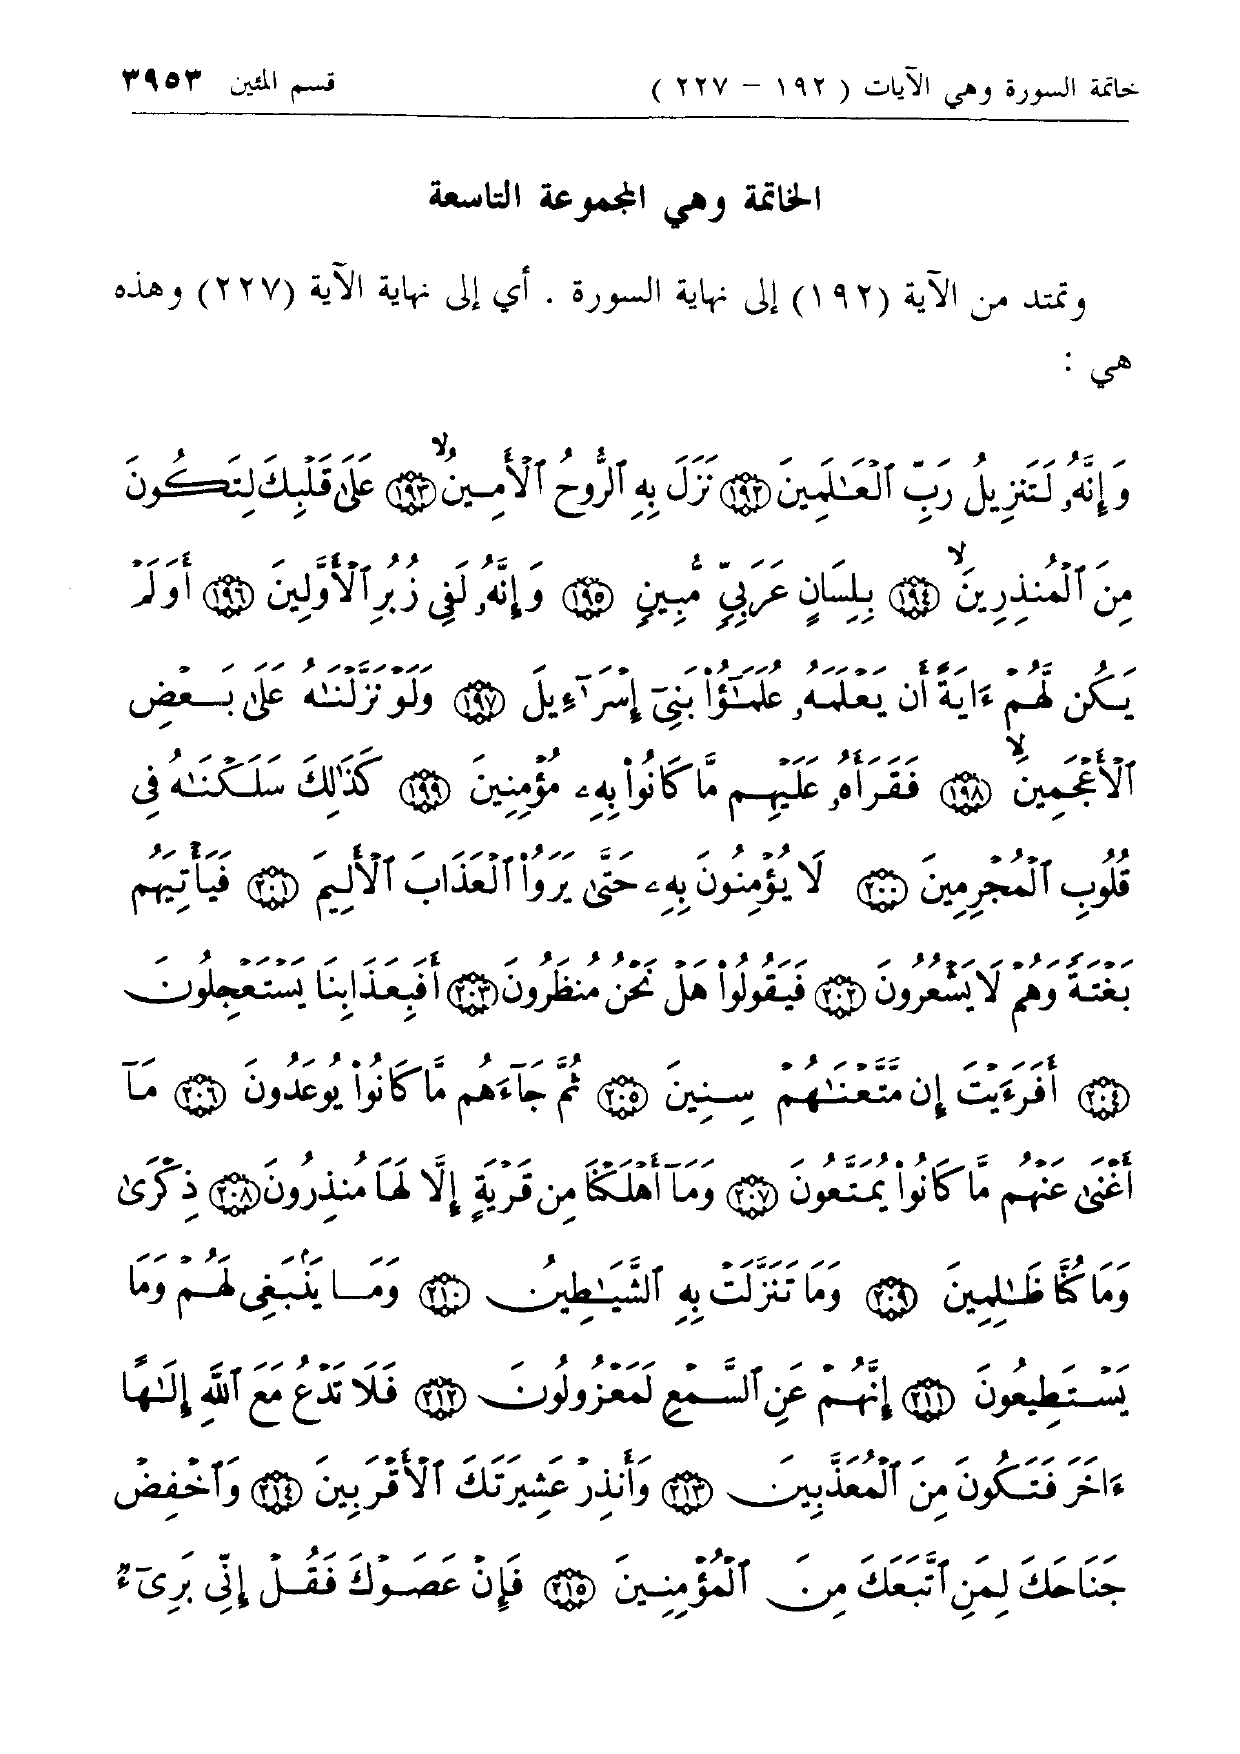 خاتمة السورة وهي الآيات ( ١٩٢ – ٢٢٧ ) قسم المئين ٣٩٥٣
الخاتمة وهي المجموعة التاسعة
وتمتد من الآية (١٩٢) إلى نهاية السورة . أي إلى نهاية الآية (٢٢٧) وهذه
هي :
وَإِنَّهُۥ لَتَنزِيلُ رَبِّ ٱلْعَٰلَمِينَ ١٩٢ نَزَلَ بِهِ ٱلرُّوحُ ٱلْأَمِينُ ۙ ١٩٣ عَلَىٰ قَلْبِكَ لِتَكُونَ
مِنَ ٱلْمُنذِرِينَ ۙ ١٩٤ بِلِسَانٍ عَرَبِيٍّ مُّبِينٍ ١٩٥ وَإِنَّهُۥ لَفِى زُبُرِ ٱلْأَوَّلِينَ ١٩٦ أَوَلَمْ
يَكُن لَّهُمْ ءَايَةً أَن يَعْلَمَهُۥ عُلَمَٰٓؤُا۟ بَنِىٓ إِسْرَٰٓءِيلَ ١٩٧ وَلَوْ نَزَّلْنَٰهُ عَلَىٰ بَعْضِ
ٱلْأَعْجَمِينَ ۙ ١٩٨ فَقَرَأَهُۥ عَلَيْهِم مَّا كَانُوا۟ بِهِۦ مُؤْمِنِينَ ١٩٩ كَذَٰلِكَ سَلَكْنَٰهُ فِى
قُلُوبِ ٱلْمُجْرِمِينَ ٢٠٠ لَا يُؤْمِنُونَ بِهِۦ حَتَّىٰ يَرَوُا۟ ٱلْعَذَابَ ٱلْأَلِيمَ ٢٠١ فَيَأْتِيَهُم
بَغْتَةً وَهُمْ لَا يَشْعُرُونَ ٢٠٢ فَيَقُولُوا۟ هَلْ نَحْنُ مُنظَرُونَ ٢٠٣ أَفَبِعَذَابِنَا يَسْتَعْجِلُونَ
٢٠٤ أَفَرَءَيْتَ إِن مَّتَّعْنَٰهُمْ سِنِينَ ٢٠٥ ثُمَّ جَآءَهُم مَّا كَانُوا۟ يُوعَدُونَ ٢٠٦ مَآ
أَغْنَىٰ عَنْهُم مَّا كَانُوا۟ يُمَتَّعُونَ ٢٠٧ وَمَآ أَهْلَكْنَا مِن قَرْيَةٍ إِلَّا لَهَا مُنذِرُونَ ٢٠٨ ذِكْرَىٰ
وَمَا كُنَّا ظَٰلِمِينَ ٢٠٩ وَمَا تَنَزَّلَتْ بِهِ ٱلشَّيَٰطِينُ ٢١٠ وَمَا يَنۢبَغِى لَهُمْ وَمَا
يَسْتَطِيعُونَ ٢١١ إِنَّهُمْ عَنِ ٱلسَّمْعِ لَمَعْزُولُونَ ٢١٢ فَلَا تَدْعُ مَعَ ٱللَّهِ إِلَٰهًا
ءَاخَرَ فَتَكُونَ مِنَ ٱلْمُعَذَّبِينَ ٢١٣ وَأَنذِرْ عَشِيرَتَكَ ٱلْأَقْرَبِينَ ٢١٤ وَٱخْفِضْ
جَنَاحَكَ لِمَنِ ٱتَّبَعَكَ مِنَ ٱلْمُؤْمِنِينَ ٢١٥ فَإِنْ عَصَوْكَ فَقُلْ إِنِّى بَرِىٓءٌ